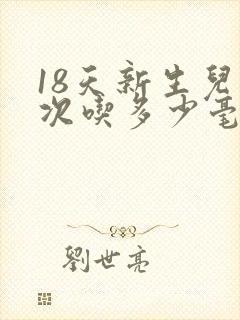 18天新生兒
次喫多少毫
劉世亮